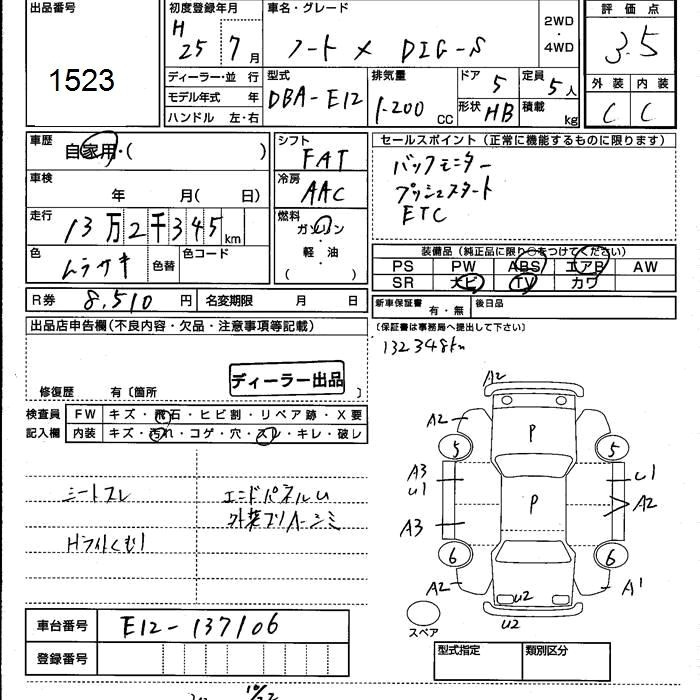 出品番号
1523
初度登録年月
H 25 7月
車名・グレード
ノート X DIG-S
2WD
・
4WD
評価点
3.5
ディーラー・並行
モデル年式 年
ハンドル 左・右
型式
DBA-E12
排気量
1200 cc
ドア 5
定員 5人
形状 HB
積載 kg
外装 内装
C C
車歴
自家用・( )
シフト
FAT
セールスポイント(正常に機能するものに限ります)
バックモニター
プッシュスタート
ETC
車検
年 月( 日)
冷房
AAC
走行
13万2千345km
燃料
ガソリン
・
軽油
( )
色
ムラサキ
色替
色コード
装備品(純正品に限り○をつけてください)
PS PW ABS エアB AW
SR ナビ TV カワ
R券 8,510円
名変期限 月 日
新車保証書
有・無
後日品
(保証書は事務局へ提出して下さい)
132348km
出品店申告欄(不良内容・欠品・注意事項等記載)
ディーラー出品
修復歴 有〔箇所
検査員
記入欄
FW キズ・飛石・ヒビ割・リペア跡・X要
内装 キズ・汚れ・コゲ・穴・スレ・キレ・破レ
シートスレ
エンドパネルU
外装プリハーシミ
Hライトくもり
A2
A2
P
5
5
A3
U1
U1
P
A2
A3
6
6
A2
U2
A1
U2
スペア
車台番号 E12-137106
登録番号
型式指定
類別区分